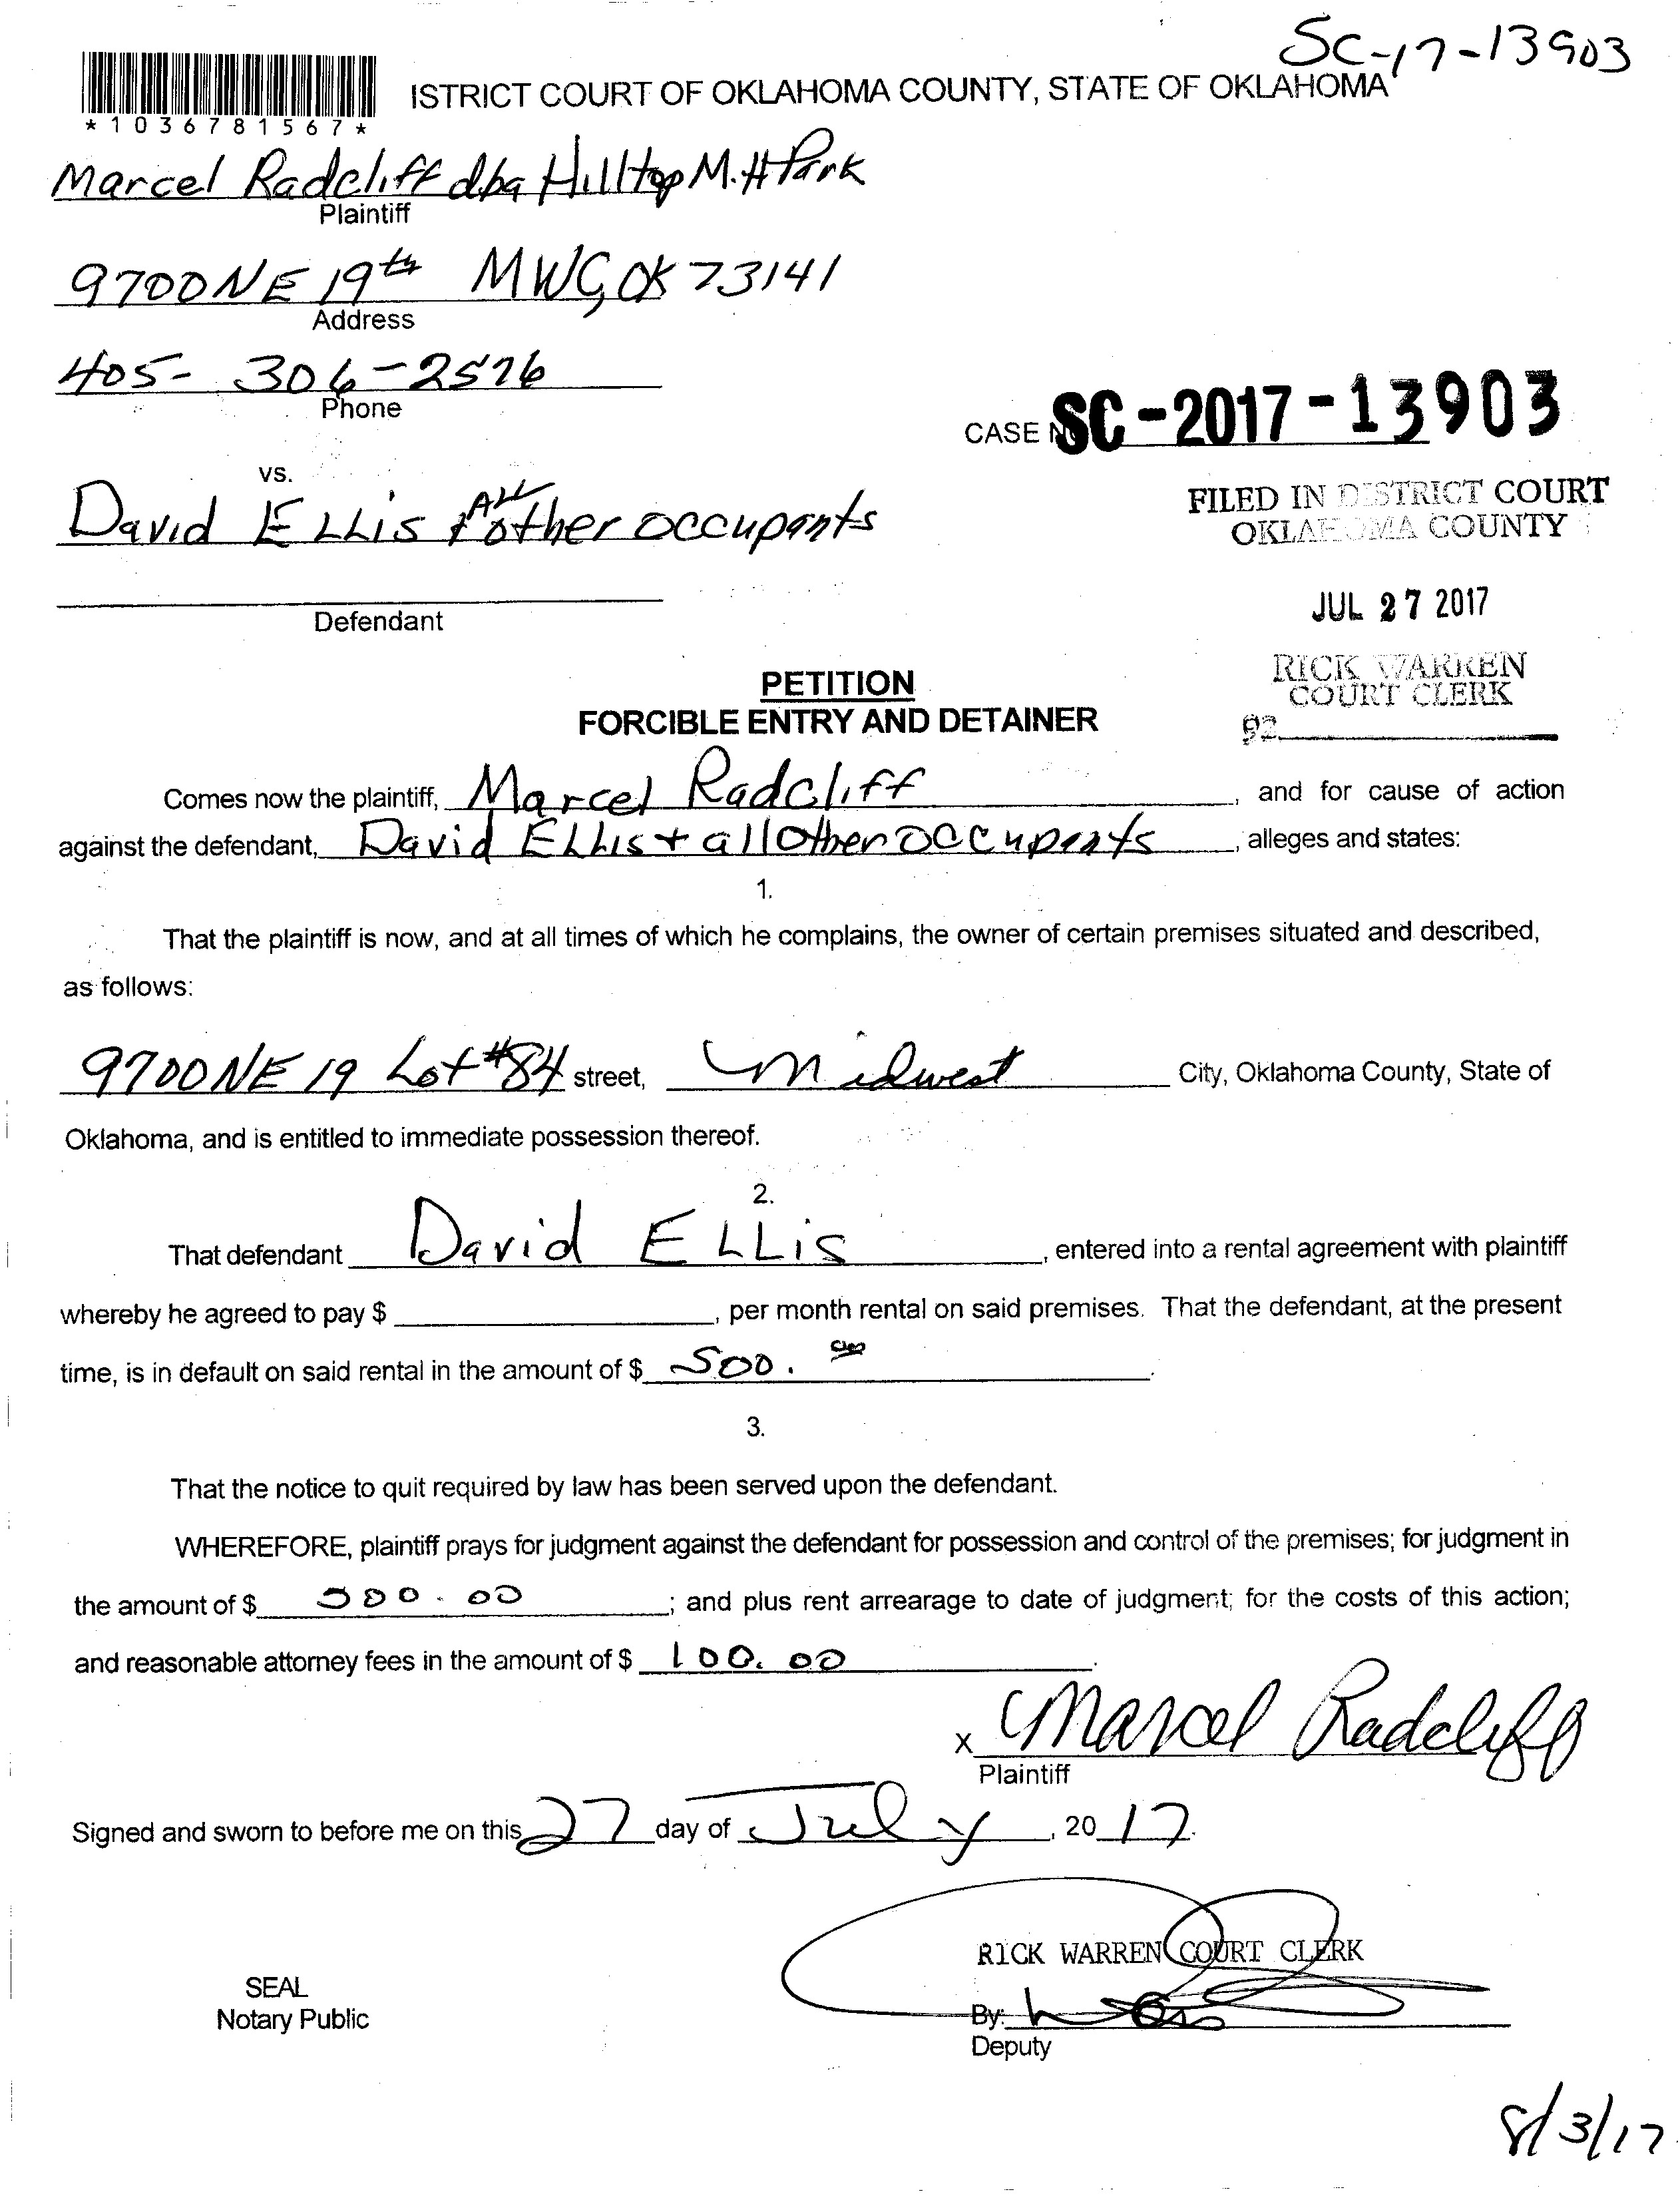 SC-17-13903
ISTRICT COURT OF OKLAHOMA COUNTY, STATE OF OKLAHOMA
*1036781567*
Marcel Radcliff dba Hilltop M.H Park
Plaintiff
9700 NE 19th MWC, OK 73141
Address
405- 306-2576
Phone
CASE SC-2017-13903
vs.
David ELLis + ALL other occupants
FILED IN DISTRICT COURT
OKLAHOMA COUNTY
Defendant
JUL 27 2017
RICK WARREN
COURT CLERK
92
PETITION
FORCIBLE ENTRY AND DETAINER
Comes now the plaintiff, Marcel Radcliff, and for cause of action
against the defendant, David ELLis + all other occupants, alleges and states:
1.
That the plaintiff is now, and at all times of which he complains, the owner of certain premises situated and described,
as follows:
9700 NE 19 Lot #84 street, Midwest City, Oklahoma County, State of
Oklahoma, and is entitled to immediate possession thereof.
2.
That defendant David ELLis, entered into a rental agreement with plaintiff
whereby he agreed to pay $ , per month rental on said premises. That the defendant, at the present
time, is in default on said rental in the amount of $ 500.00.
3.
That the notice to quit required by law has been served upon the defendant.
WHEREFORE, plaintiff prays for judgment against the defendant for possession and control of the premises; for judgment in
the amount of $ 500.00; and plus rent arrearage to date of judgment; for the costs of this action;
and reasonable attorney fees in the amount of $ 100.00.
X Marcel Radcliff
Plaintiff
Signed and sworn to before me on this 27 day of July, 2017.
RICK WARREN COURT CLERK
SEAL
Notary Public
By:
Deputy
8/3/17